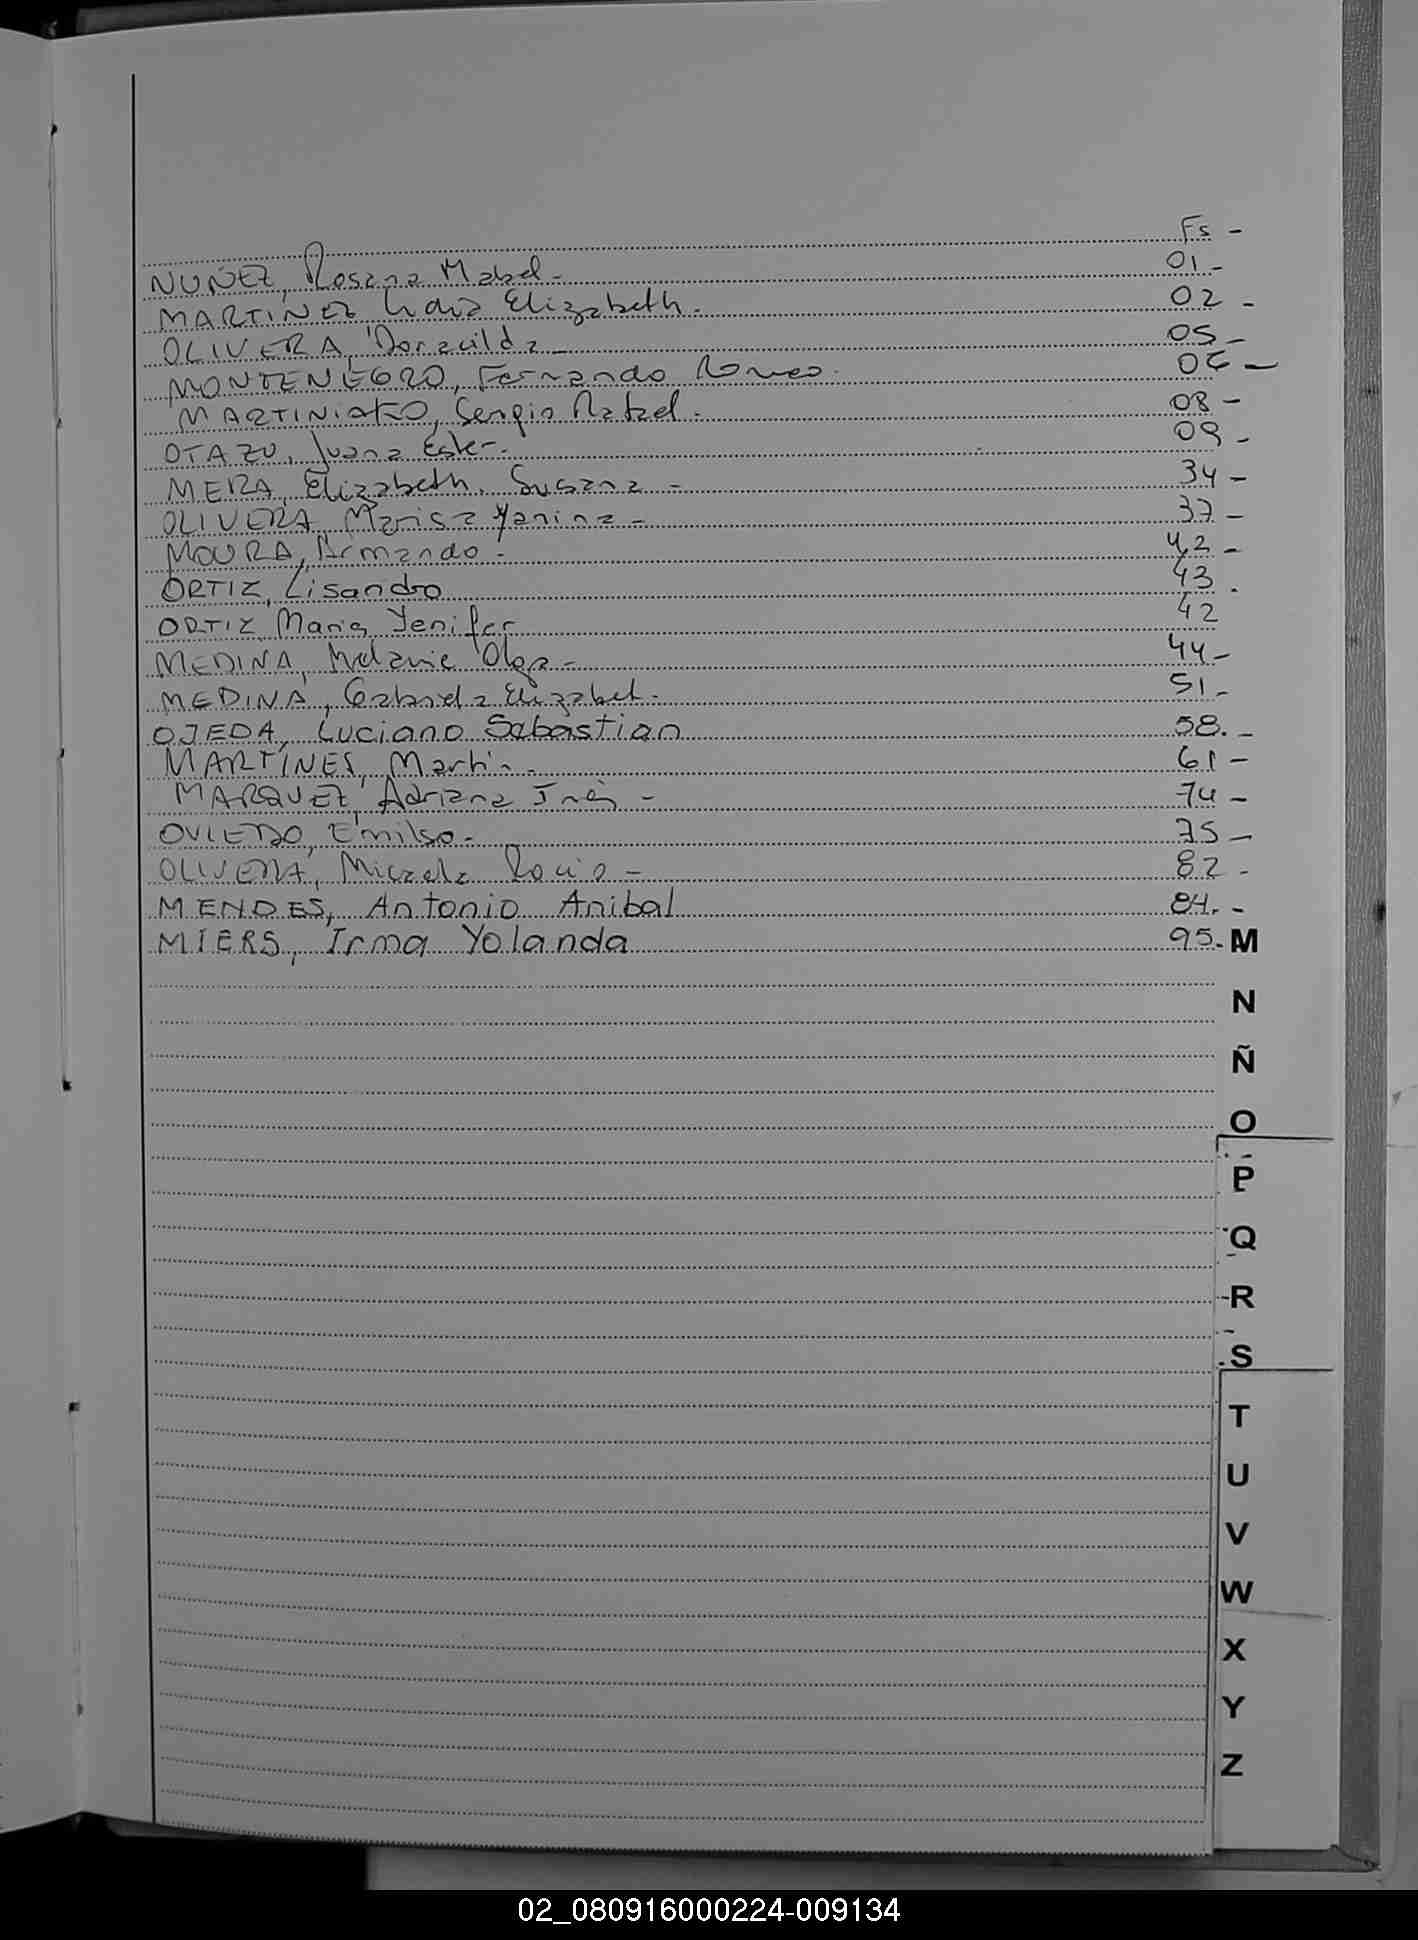 Fs -
NUÑEZ, Rosana Mabel - 01 -
MARTINEZ Elizabeth - 02 -
OLIVERA, Doracilda - 05 -
MONTENEGRO, Fernando Romeo - 06 -
Sergio Rafael - 08 -
OTAZU, Juana Ester - 09 -
MERA, Elizabeth Susana - 34 -
OLIVERA Marisa Yanina - 37 -
MOURA, Armando - 42 -
ORTIZ, Lisandro 43 .
ORTIZ, Maria Yenifer 42
MEDINA, Melanie Olga - 44 -
MEDINA, Gabriela Elizabet - 51 -
OJEDA, Luciano Sebastian 58. -
MARTINES, Martin - 61 -
MARQUEZ, Adriana Inés - 74 -
OVIEDO, Emilse - 75 -
OLIVERA, Micaela Rocio - 82 -
MENDES, Antonio Anibal 84. -
MIERS, Irma Yolanda 95. -
M
N
Ñ
O
P
Q
R
S
T
U
V
W
X
Y
Z
02_080916000224-009134